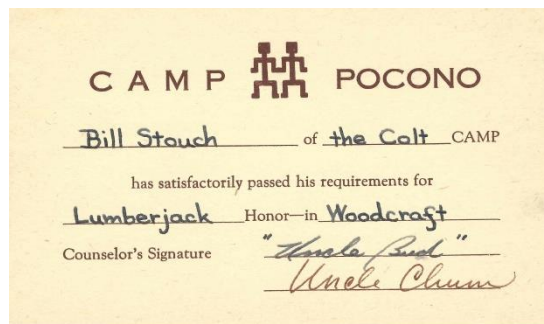 CAMP POCONO
Bill Stouch of the Colt CAMP
has satisfactorily passed his requirements for
Lumberjack Honor—in Woodcraft
Counselor's Signature "Uncle Bud"
Uncle Chum